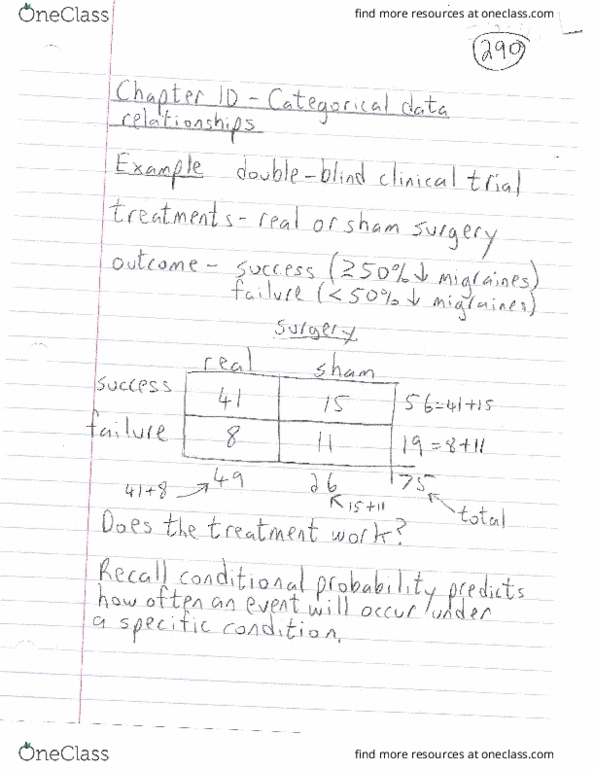 OneClass
find more resources at oneclass.com
290
Chapter 10 - Categorical data
relationships
Example double-blind clinical trial
treatments - real or sham surgery
outcome - success (≥50% ↓ migraines)
failure (<50% ↓ migraines)
surgery
real sham
success 41 15 56=41+15
failure 8 11 19=8+11
41+8 → 49 26 75
15+11 total
Does the treatment work?
Recall conditional probability predicts
how often an event will occur under
a specific condition.
OneClass
find more resources at oneclass.com